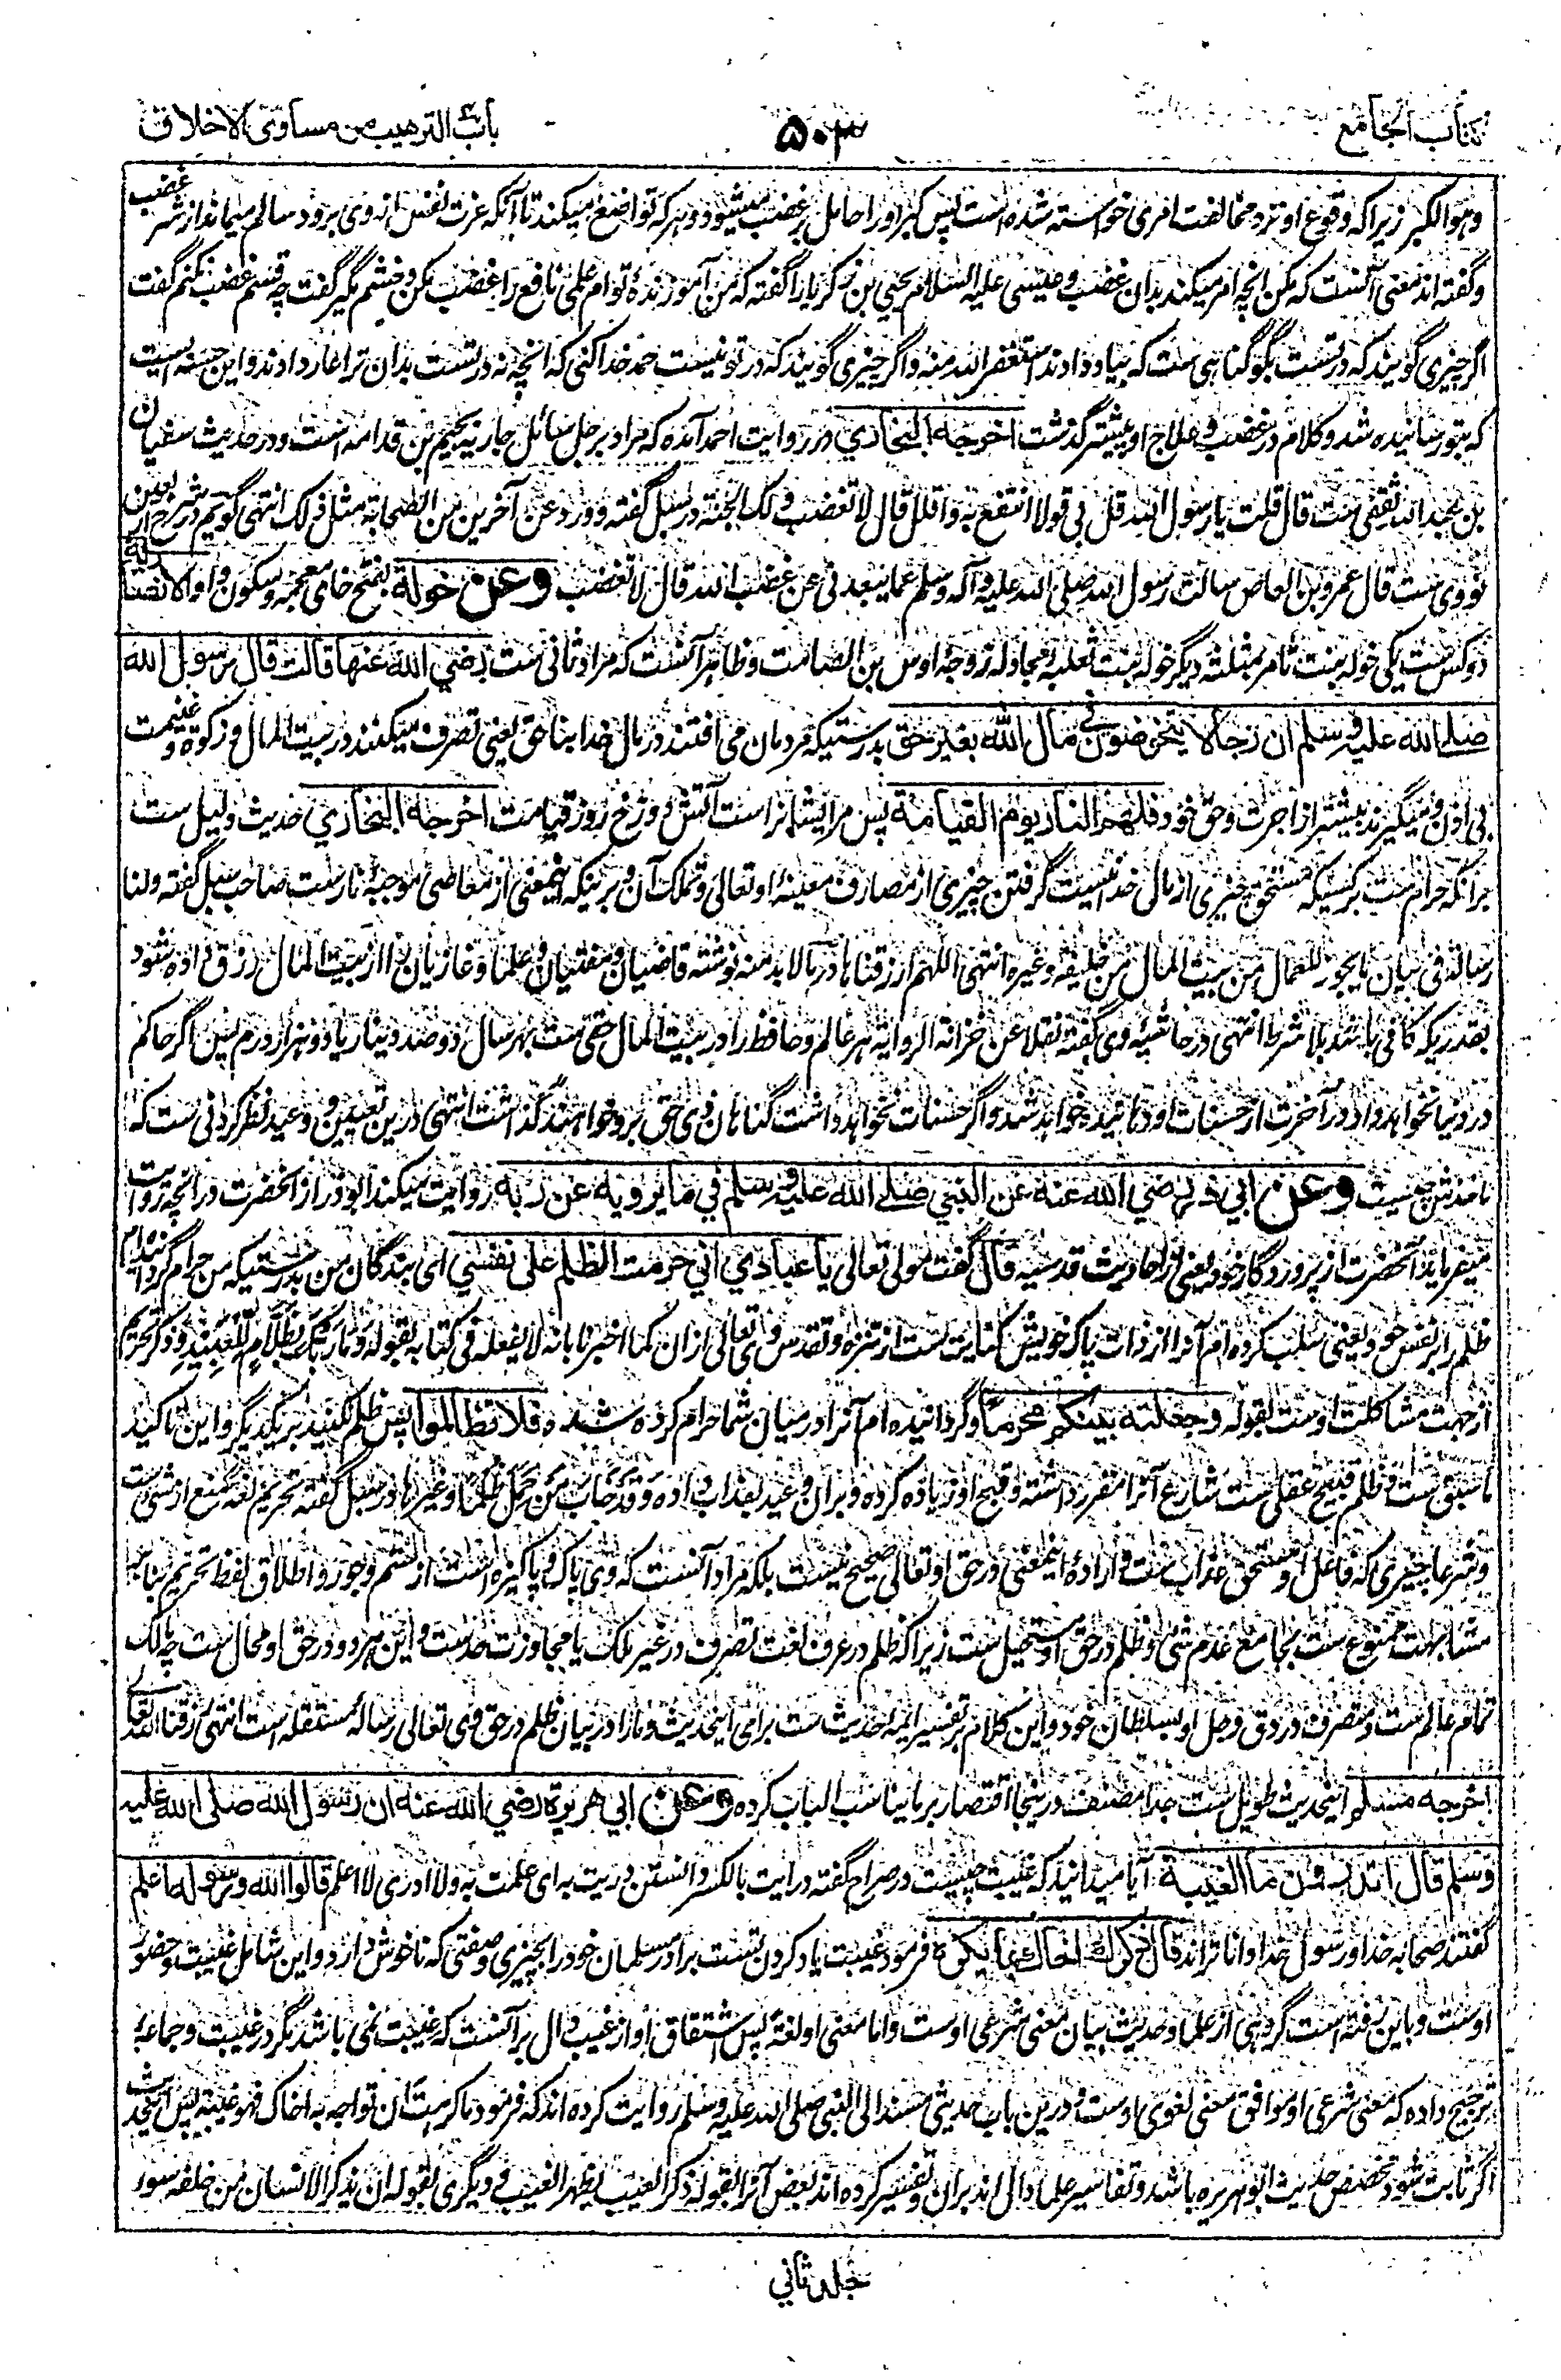 كتاب الجامع
۵۰۳
باب الترهيب من مساوئ الاخلاق
وهو الکبر زیرا که وقوع او نزد مخالفت امری خواسته شده است پس کبر او را حامل بر غضب میشود و هر که تواضع میکند تا آنکه عزت نفس از وی برود سالم میماند از شر غضب
و گفته اند معنی آنست که مکن انچه امر میکند بدان غضب و عیسی علیه السلام یحیی بن زکریا را گفته که من آموزنده تو ام علمی نافع را غضب مکن و خشم مگیر گفت چه قسم غضب نکنم گفت
اگر چیزی گویند که در تست بگو گناهی ست که بیاد دادند استغفر الله منه و اگر چیزی گویند که در تو نیست حمد خدا کنی که انچه نه در تست بدان ترا عار دادند و این حسنه ایست
که بتو رسانیده شد و کلام در غضب و علاج او پیشتر گذشت اخرجه البخاري در روایت احمد آمده که مراد برجل سائل جاریه بجیم بن قدامه است و در حدیث سفیان
بن عبد الله ثقفی ست قال قلت یا رسول الله قل لی قولا انتفع به و اقلل قال لا تغضب و لک الجنة در سبل گفته و ورد عن آخرین من الصحابة مثل ذلک انتهی گویم در شرح اربعین
نووی ست قال عمرو بن العاص سالت رسول الله صلی الله علیه و آله وسلم عما یبعدنی عن غضب الله قال لا تغضب وعن خولة بفتح خای معجمه و سکون واو الانصارية
دو کس ست یکی خوله بنت ثامر بمثلثه دیگر خوله بنت ثعلبه مجادله زوجه اوس بن الصامت و ظاهر آنست که مراد ثانی ست رضي الله عنها قالت قال رسول الله
صلى الله عليه وسلم ان رجالا يتخوضون في مال الله بغير حق بدرستیکه مردمان می افتند در مال خدا بناحق یعنی تصرف میکنند در بیت المال و زکوة و غنیمت
بی اذن و میگیرند بیشتر از اجرت و حق خود فلهم النار يوم القيامة پس مر ایشانراست آتش دوزخ روز قیامت اخرجه البخاري حدیث دلیل ست
برانکه حرام ست بر کسیکه مستحق چیزی از مال خدا نیست گرفتن چیزی از مصارف معینه او تعالی و تملک آن و برینکه اینمعنی از معاصی موجبهٔ نار ست صاحب سبل گفته و لنا
رسالة فی بیان ما یجوز للعمال من بیت المال من خلیفه و غیره انتهی اللهم ارزقناها در ما لا بد منه نوشته قاضیان و مفتیان و علما و غازیان را از بیت المال رزق داده شود
بقدریکه کافی باشد بلا شرط انتهی در حاشیه وی گفته نقلا عن خزانة الروایة هر عالم و حافظ را در بیت المال حقی ست بهر سال دو صد دینار یا دو هزار درم پس اگر حاکم
در دنیا نخواهد داد در آخرت از حسنات او دهانیده خواهد شد و اگر حسنات نخواهد داشت گناهان ذی حق برو خواهند گذاشت انتهی درین تعیین و وعید نظر کردنی ست که
ماخذش چیست وعن ابي ذر رضي الله عنه عن النبي صلى الله عليه وسلم في ما يرويه عن ربه روایت میکند ابوذر از انحضرت در انچه روایت
میفرماید آنحضرت از پروردگار خود یعنی از احادیث قدسیه قال گفت مولی تعالی يا عبادي اني حرمت الظلم على نفسي ای بندگان من بدرستیکه من حرام گردانیده ام
ظلم را بر نفس خود یعنی سلب کرده ام آنرا از ذات پاک خویش کنایت ست از تنزه و تقدس وی تعالی از ان کما اخبرنا بانه لا یفعله فی کتابه بقوله وَمَا رَبُّكَ بِظَلَّامٍ لِّلْعَبِيدِ و ذکر تحریم
از جهت مشاکلت اوست بقوله وجعلته بينكم محرما و گردانیده ام آنرا در میان شما حرام کرده شده فلا تظالموا پس ظلم نکنید بر یکدیگر و این تاکید
ما سبق ست و ظلم قبیح عقلی ست شارع آنرا مقرر داشته و قبح او زیاده کرده و بران وعید بعذاب داده وَقَدْ خَابَ مَنْ حَمَلَ ظُلْمًا و غیرها در سبل گفته تحریم لغة منع از شی ست
و شرعا چیزی که فاعل او مستحق عذاب ست و اراده اینمعنی در حق او تعالی صحیح نیست بلکه مراد آنست که وی پاک و پاکیزه است از ستم و جور و اطلاق لفظ تحریم بنا بر
مشابهت ممنوع ست بجامع عدم شی و ظلم در حق او مستحیل ست زیرا که ظلم در عرف لغت تصرف در غیر ملک یا مجاوزت حد ست و این هر دو در حق او محال ست چه مالک
تمام عالم ست و متصرف در دق و جل او بسلطان خود و این کلام بر تفسیر ائمه حدیث ست برای اینحدیث و ما را در بیان ظلم در حق وی تعالی رساله مستقله است انتهی رزقنا الله تعالی
اخرجه مسلم اینحدیث طویل ست جدا مصنف درینجا اقتصار بر ما یناسب الباب کرده وعن ابي هريرة رضي الله عنه ان رسول الله صلى الله عليه
وسلم قال اتدرون ما الغيبة آیا میدانید که غیبت چیست در صراح گفته درایت بالکسر دانستن دریت به ای علمت به و لا ادری لا اعلم قالوا الله ورسوله اعلم
گفتند صحابه خدا و رسول خدا داناتراند قال ذكرك اخاك بما يكره فرمود غیبت یاد کردن تست برادر مسلمان خود را بچیزی و صفتی که ناخوش دارد و این شامل غیبت و حضور
اوست و باین رفته است گروهی از علما و حدیث بیان معنی شرعی اوست و اما معنی او لغة پس اشتقاق او از غیب دال برآنست که غیبت نمی باشد مگر در غیبت و جماعهٔ
ترجیح داده که معنی شرعی او موافق معنی لغوی اوست و درین باب حدیثی مسند الی النبی صلی الله علیه وسلم روایت کرده اند که فرمود ما کرهت ان تواجه به اخاک فهو غیبة پس اینحدیث
اگر ثابت شود مخصص حدیث ابوهریره باشد و تفاسیر علما دال اند بران و تفسیر کرده اند بعض آنرا بقوله ذکر العیب بظهر الغیب و دیگری بقوله ان یذکر الانسان من خلفه بسوء
جلد ثاني